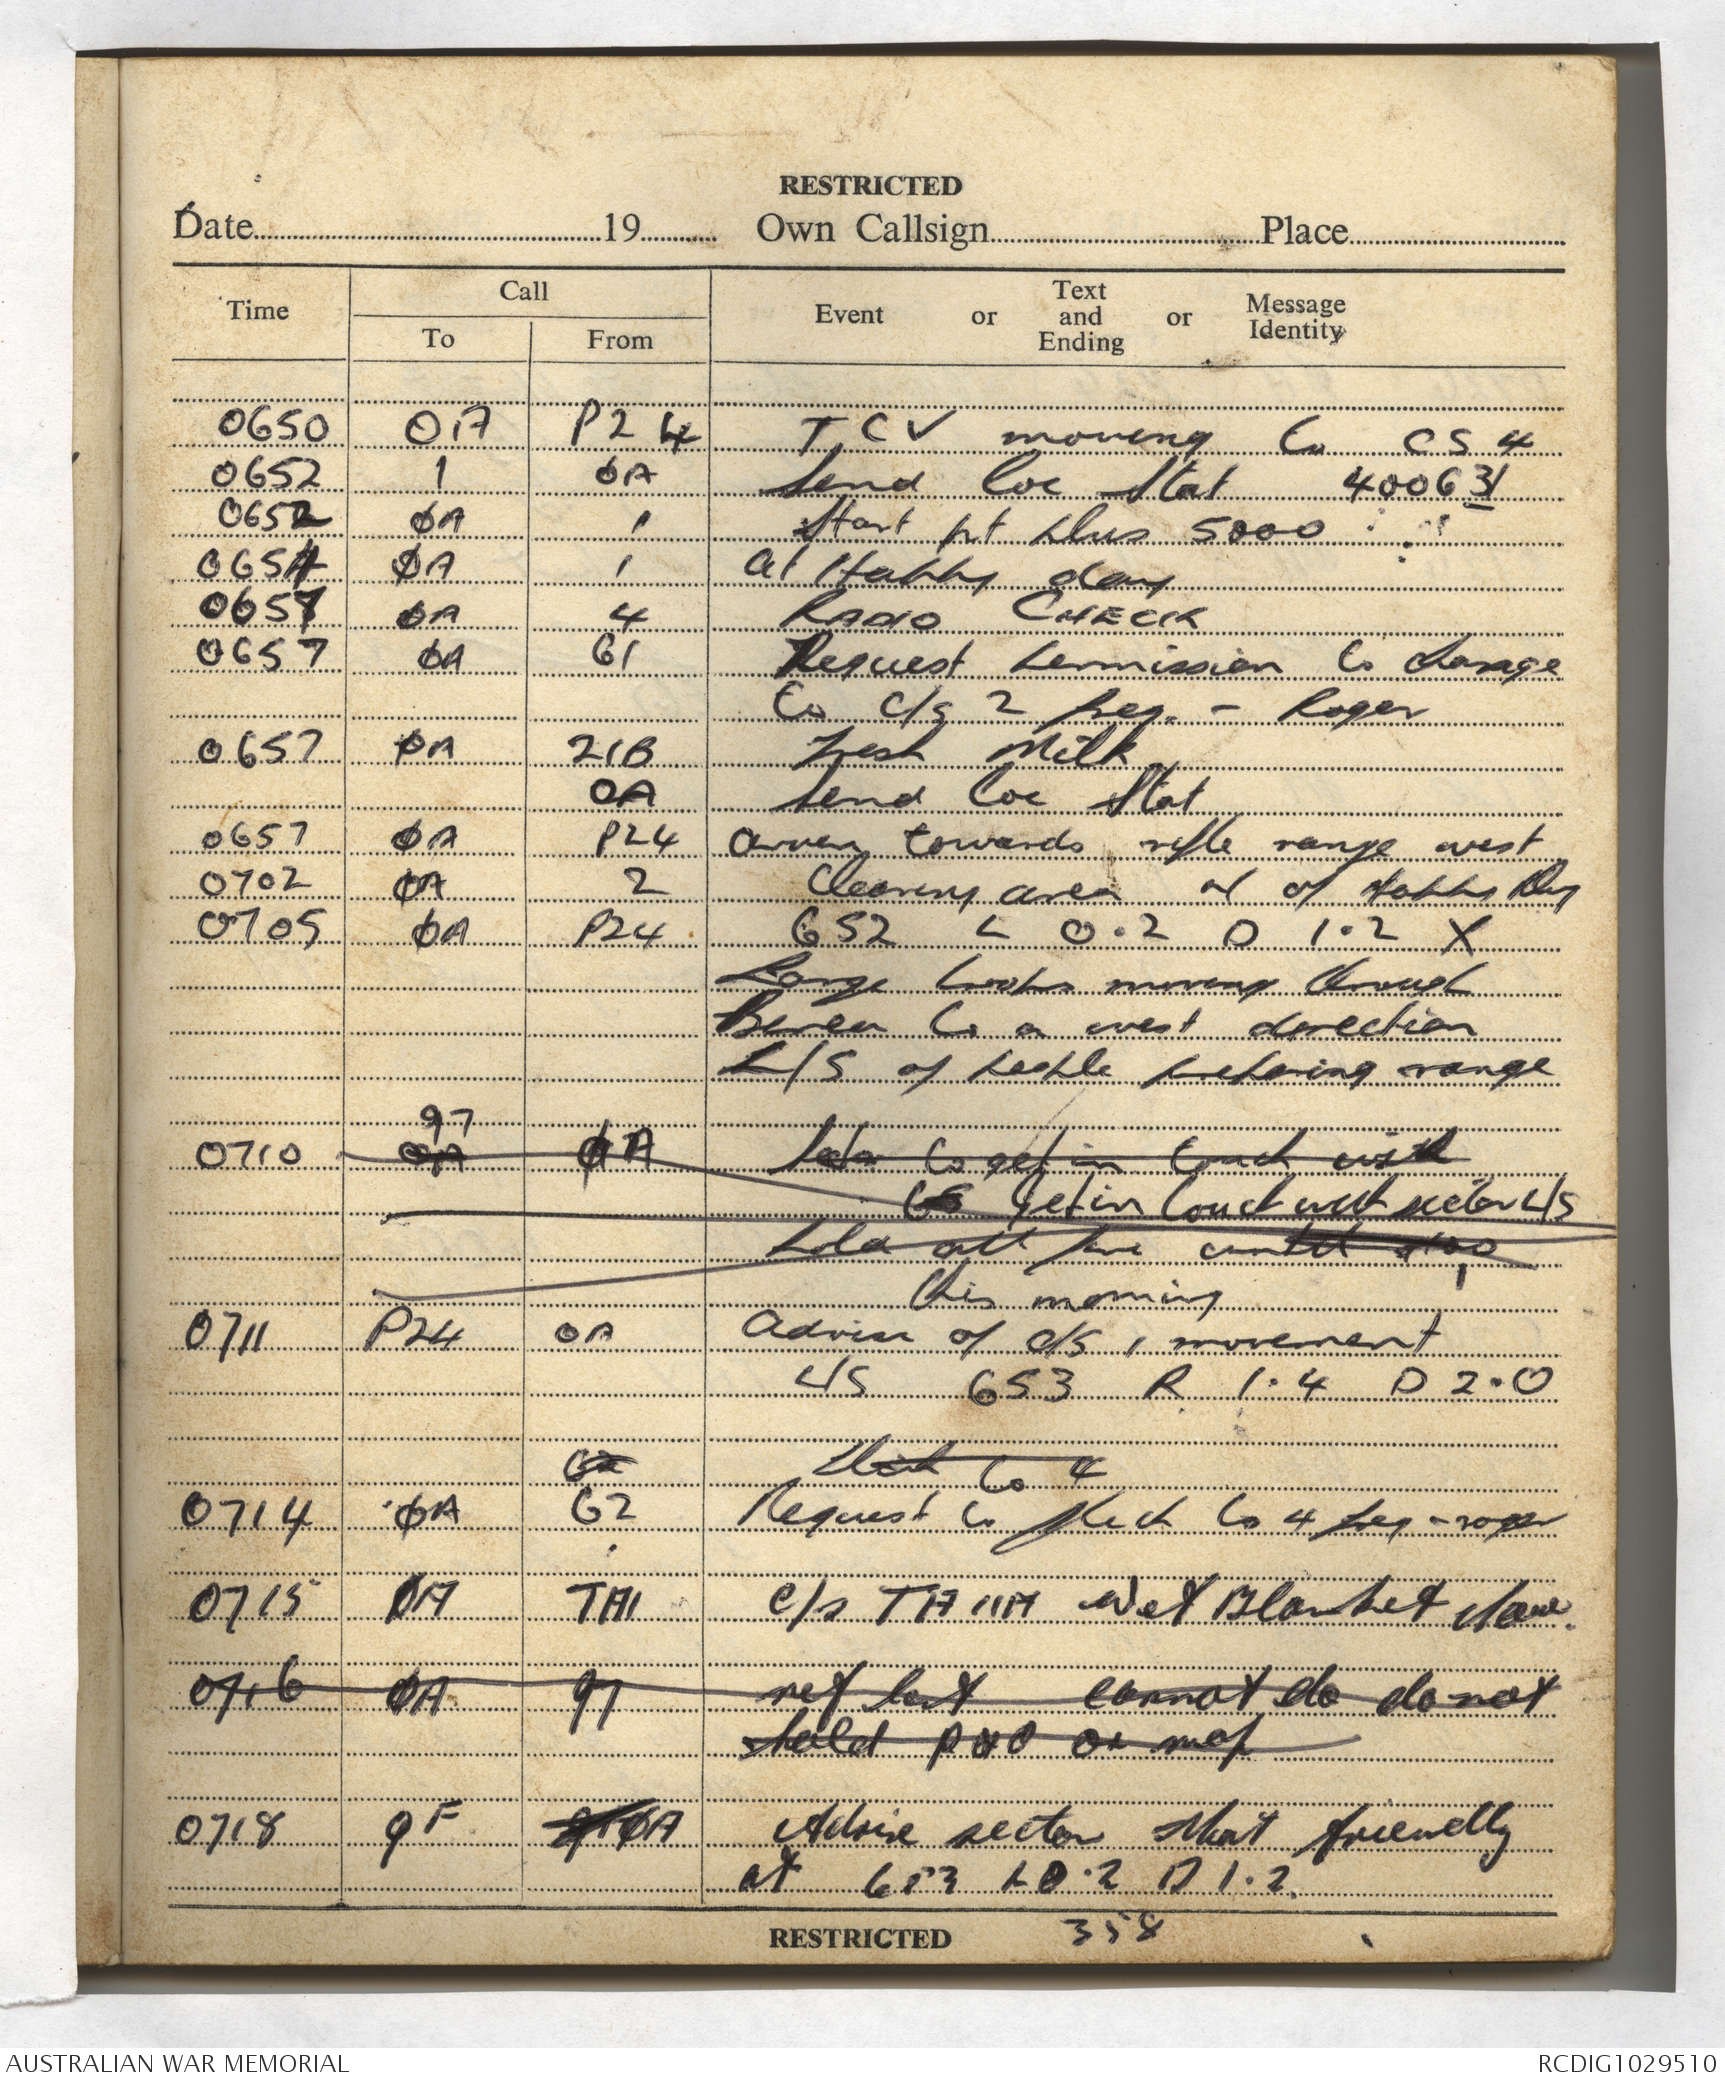 RESTRICTED
Date 19 Own Callsign Place
Time Call To From Event or Text and Ending or Message Identity
0650 0A P24 TCV moving to CS 4
0652 1 0A Send loc Stat 400631
0652 0A 1 Start pt plus 5000
0654 0A 1 at Happy day
0657 0A 4 RADIO CHECK
0657 0A 61 Request permission to change
to c/s 2 freq. - Roger
0657 0A 21B Fresh Milk
0A Send loc Stat
0657 0A P24 towards rifle range west
0702 0A 2 Clearing area of Happy Day
0705 0A P24 652 L 0.2 D 1.2 X
Large troops moving through
to a west direction
L/S of people range
97
0710 0A 0A to get in touch with
Get in touch with sector L/S
Hold all fire until
this morning
0711 P24 0A Advise of c/s 1 movement
L/S 653 R 1.4 D 2.0
to 4
0714 0A 62 Request to to 4 freq - roger
0715 0A TA1 c/s TA 11A Wet Blanket
0716 0A 97 ref last cannot do do not
hold or map
0718 9F 0A Advise sector that friendly
at 653 L 0.2 D 1.2.
RESTRICTED 358
AUSTRALIAN WAR MEMORIAL RCDIG1029510